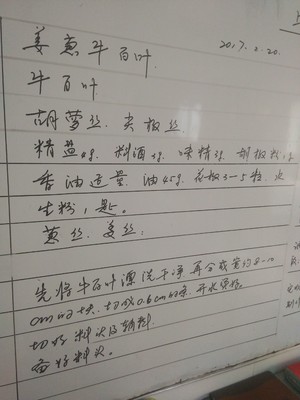 姜葱牛百叶
2017.2.20.
牛百叶
胡萝丝. 尖椒丝.
精盐4g. 料酒3g. 味精3g. 胡椒粉
香油适量. 油45g. 花椒3-5粒. 水
生粉, 1匙。
葱丝. 姜丝;
先将牛百叶漂洗干净, 再分成宽约8-10
cm的块. 切成0.6cm的条. 开水
切好料头及辅料.
备好料头。